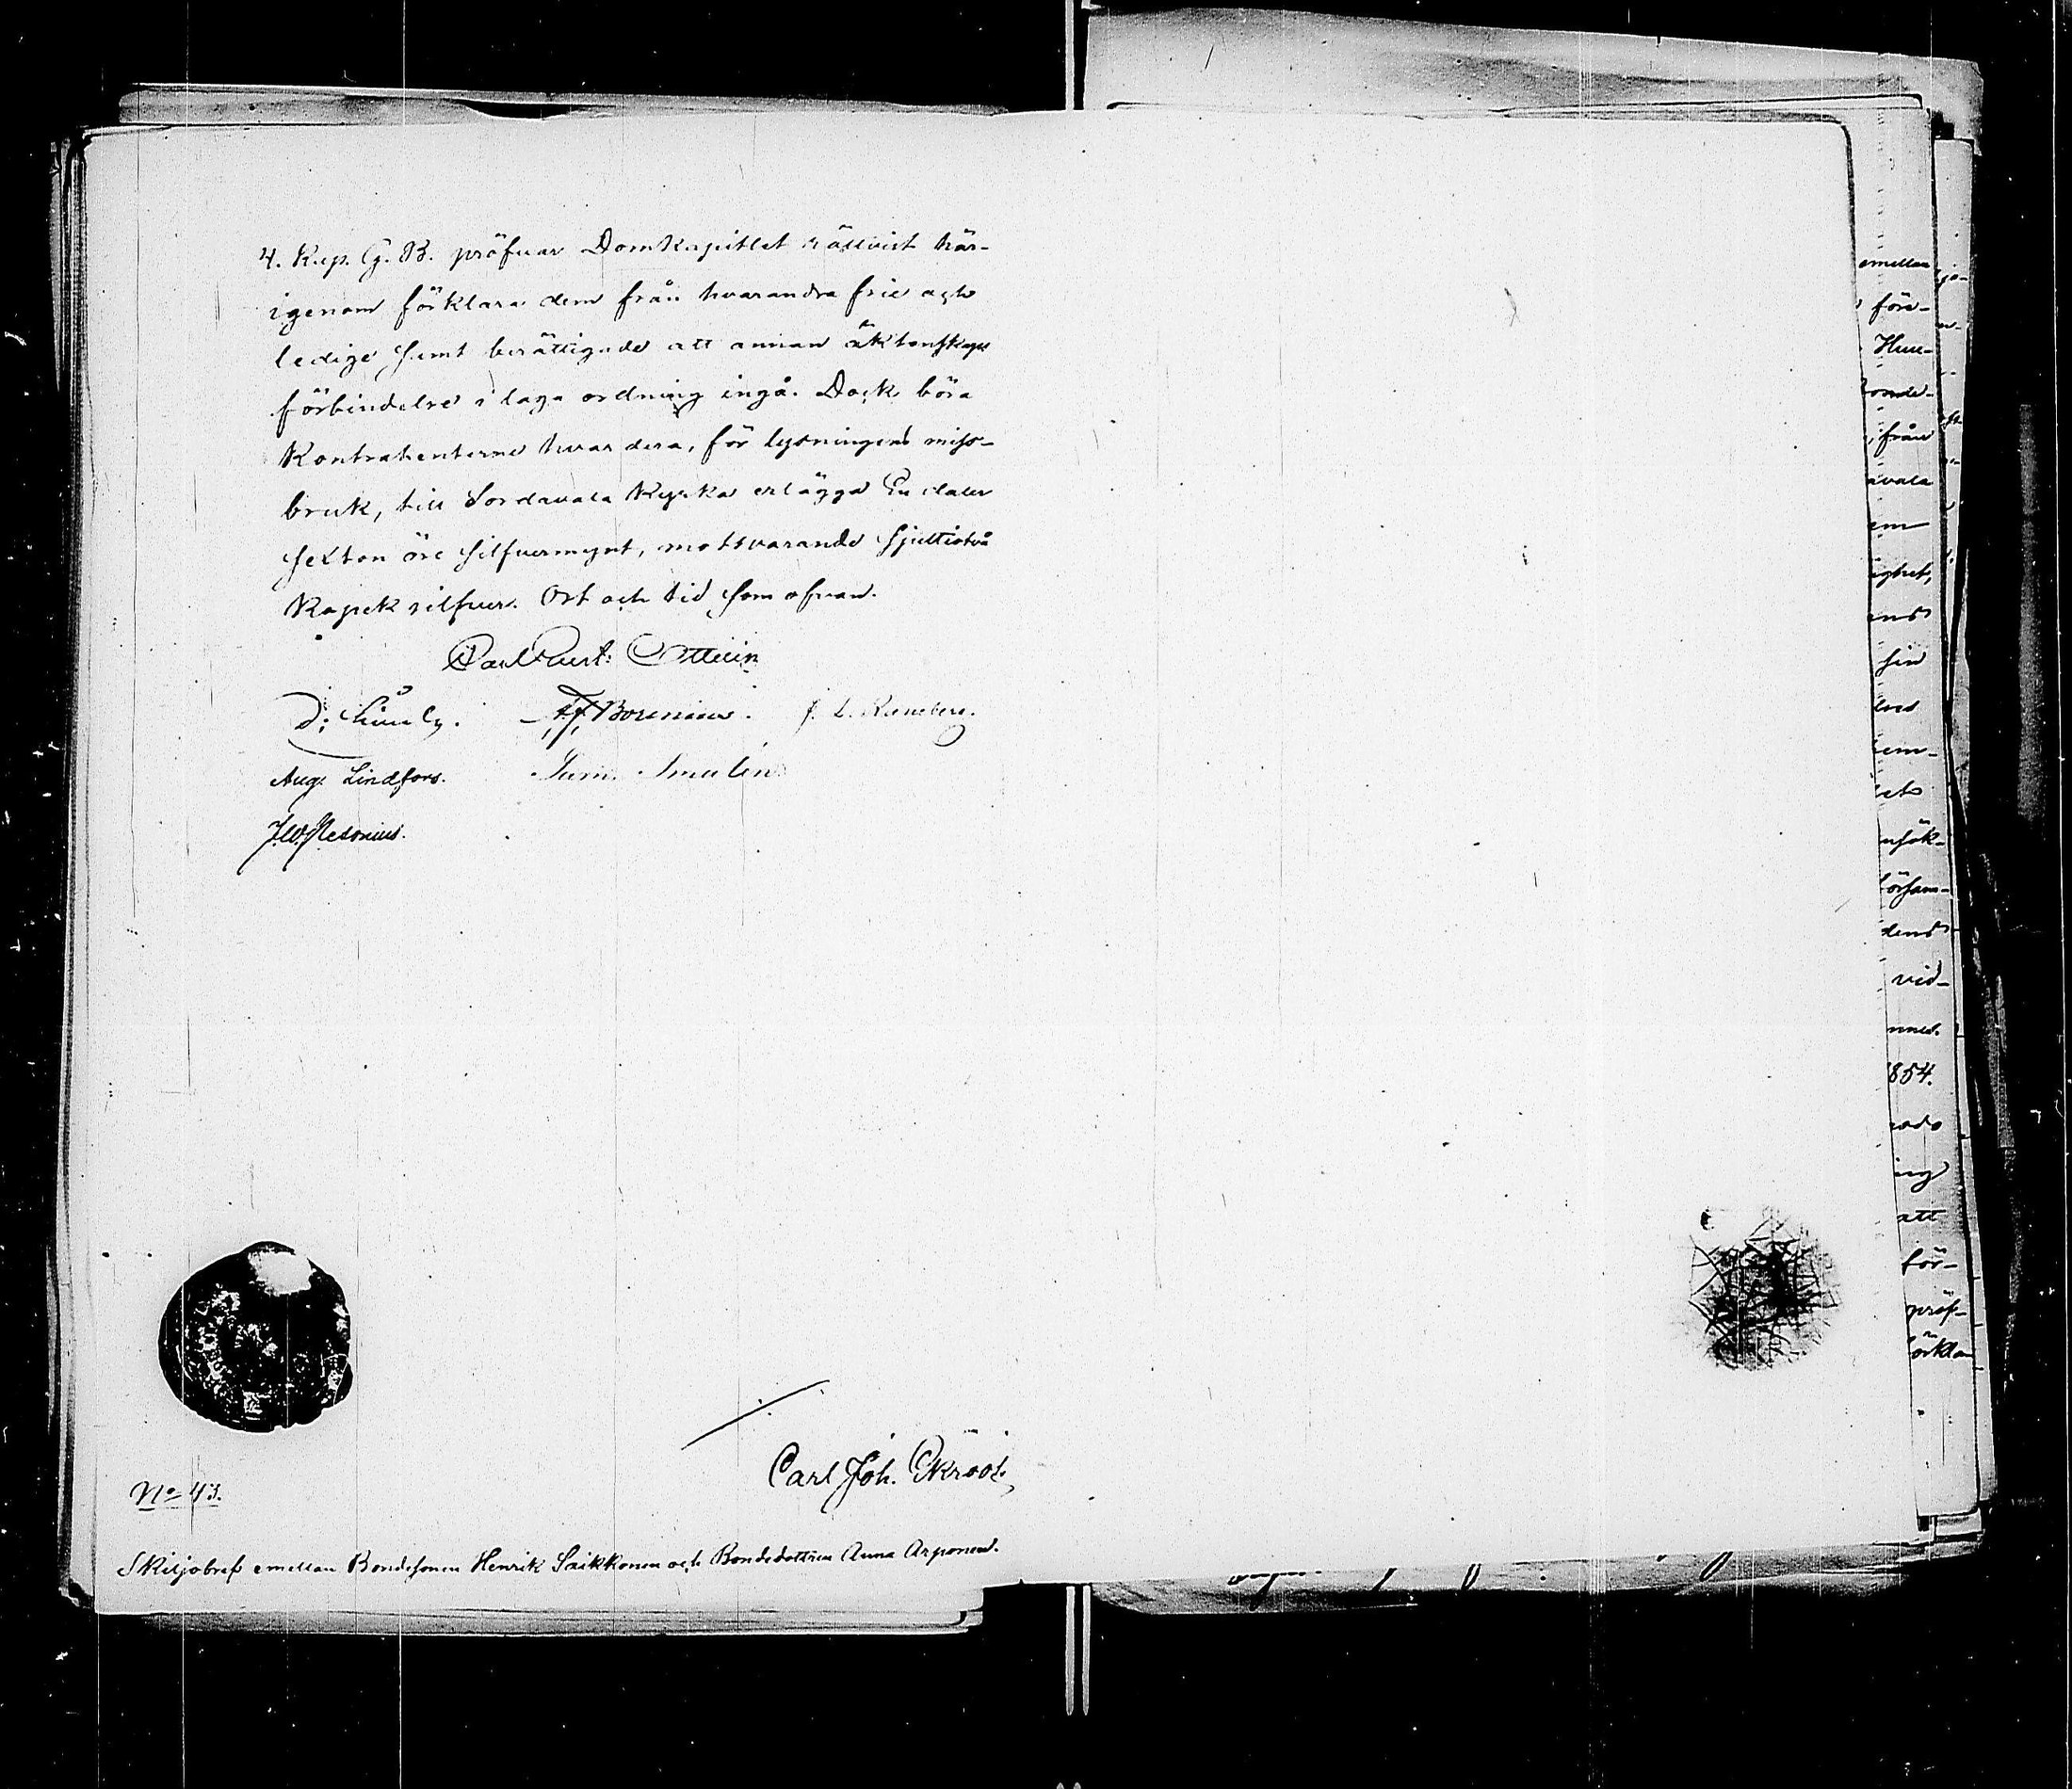 4. Kap. G. B. pröfvar Domkapitlet rättvist här-
igenom förklara dem från hvarandra frie och
ledige samt berättigade att annan äktenskaps
förbindelse i laga ordning ingå. Dock böra
Kontrahenterne hvardera, för lysningens miss-
bruk, till Sordavala Kyrka erlägga En daler
sexton öre silfvermynt, motsvarande sjuttiotvå
Kopek silfver. Ort och tid som ofvan.
Carl Gust: Ottelin
A. J. Borenius. J. L. Runeberg.
Aug. Lindfors.
Carl Joh.
No 43.
Skiljobref emellan Bondesonen Henrik Saikkonen och Bondedottren Anna Arponen.
emellan
före-
från
avala
em
ighet,
sin
örsam-
vid-
1854.
att
för-
pröf-